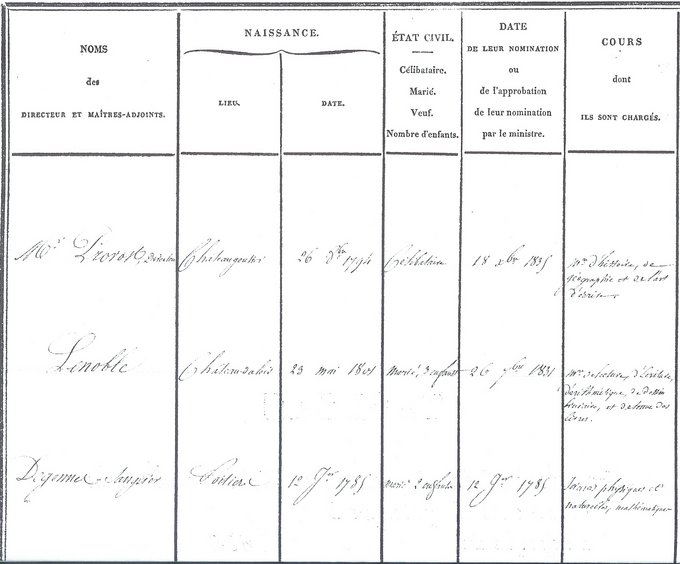 NOMS
des
DIRECTEUR ET MAÎTRES-ADJOINTS.
NAISSANCE.
LIEU.
DATE.
ÉTAT CIVIL.
Célibataire.
Marié.
Veuf.
Nombre d'enfants.
DATE
DE LEUR NOMINATION
ou
de l'approbation
de leur nomination
par le ministre.
COURS
dont
ILS SONT CHARGÉS.
Mr Provost, Directeur
26 1794
Célibataire
18 xbre 1835
d'histoire, de
géographie et de l'art
d'écrire
Lenoble
23 mai 1801
marié, 3 enfants
26 7bre 1831
de lecture, d'écriture,
d'arithmétique, de dessin
linéaire, et de tenue des
livres.
Poitiers
1785
marié 2 enfants
12 1785
Sciences physiques et
naturelles, mathématiques